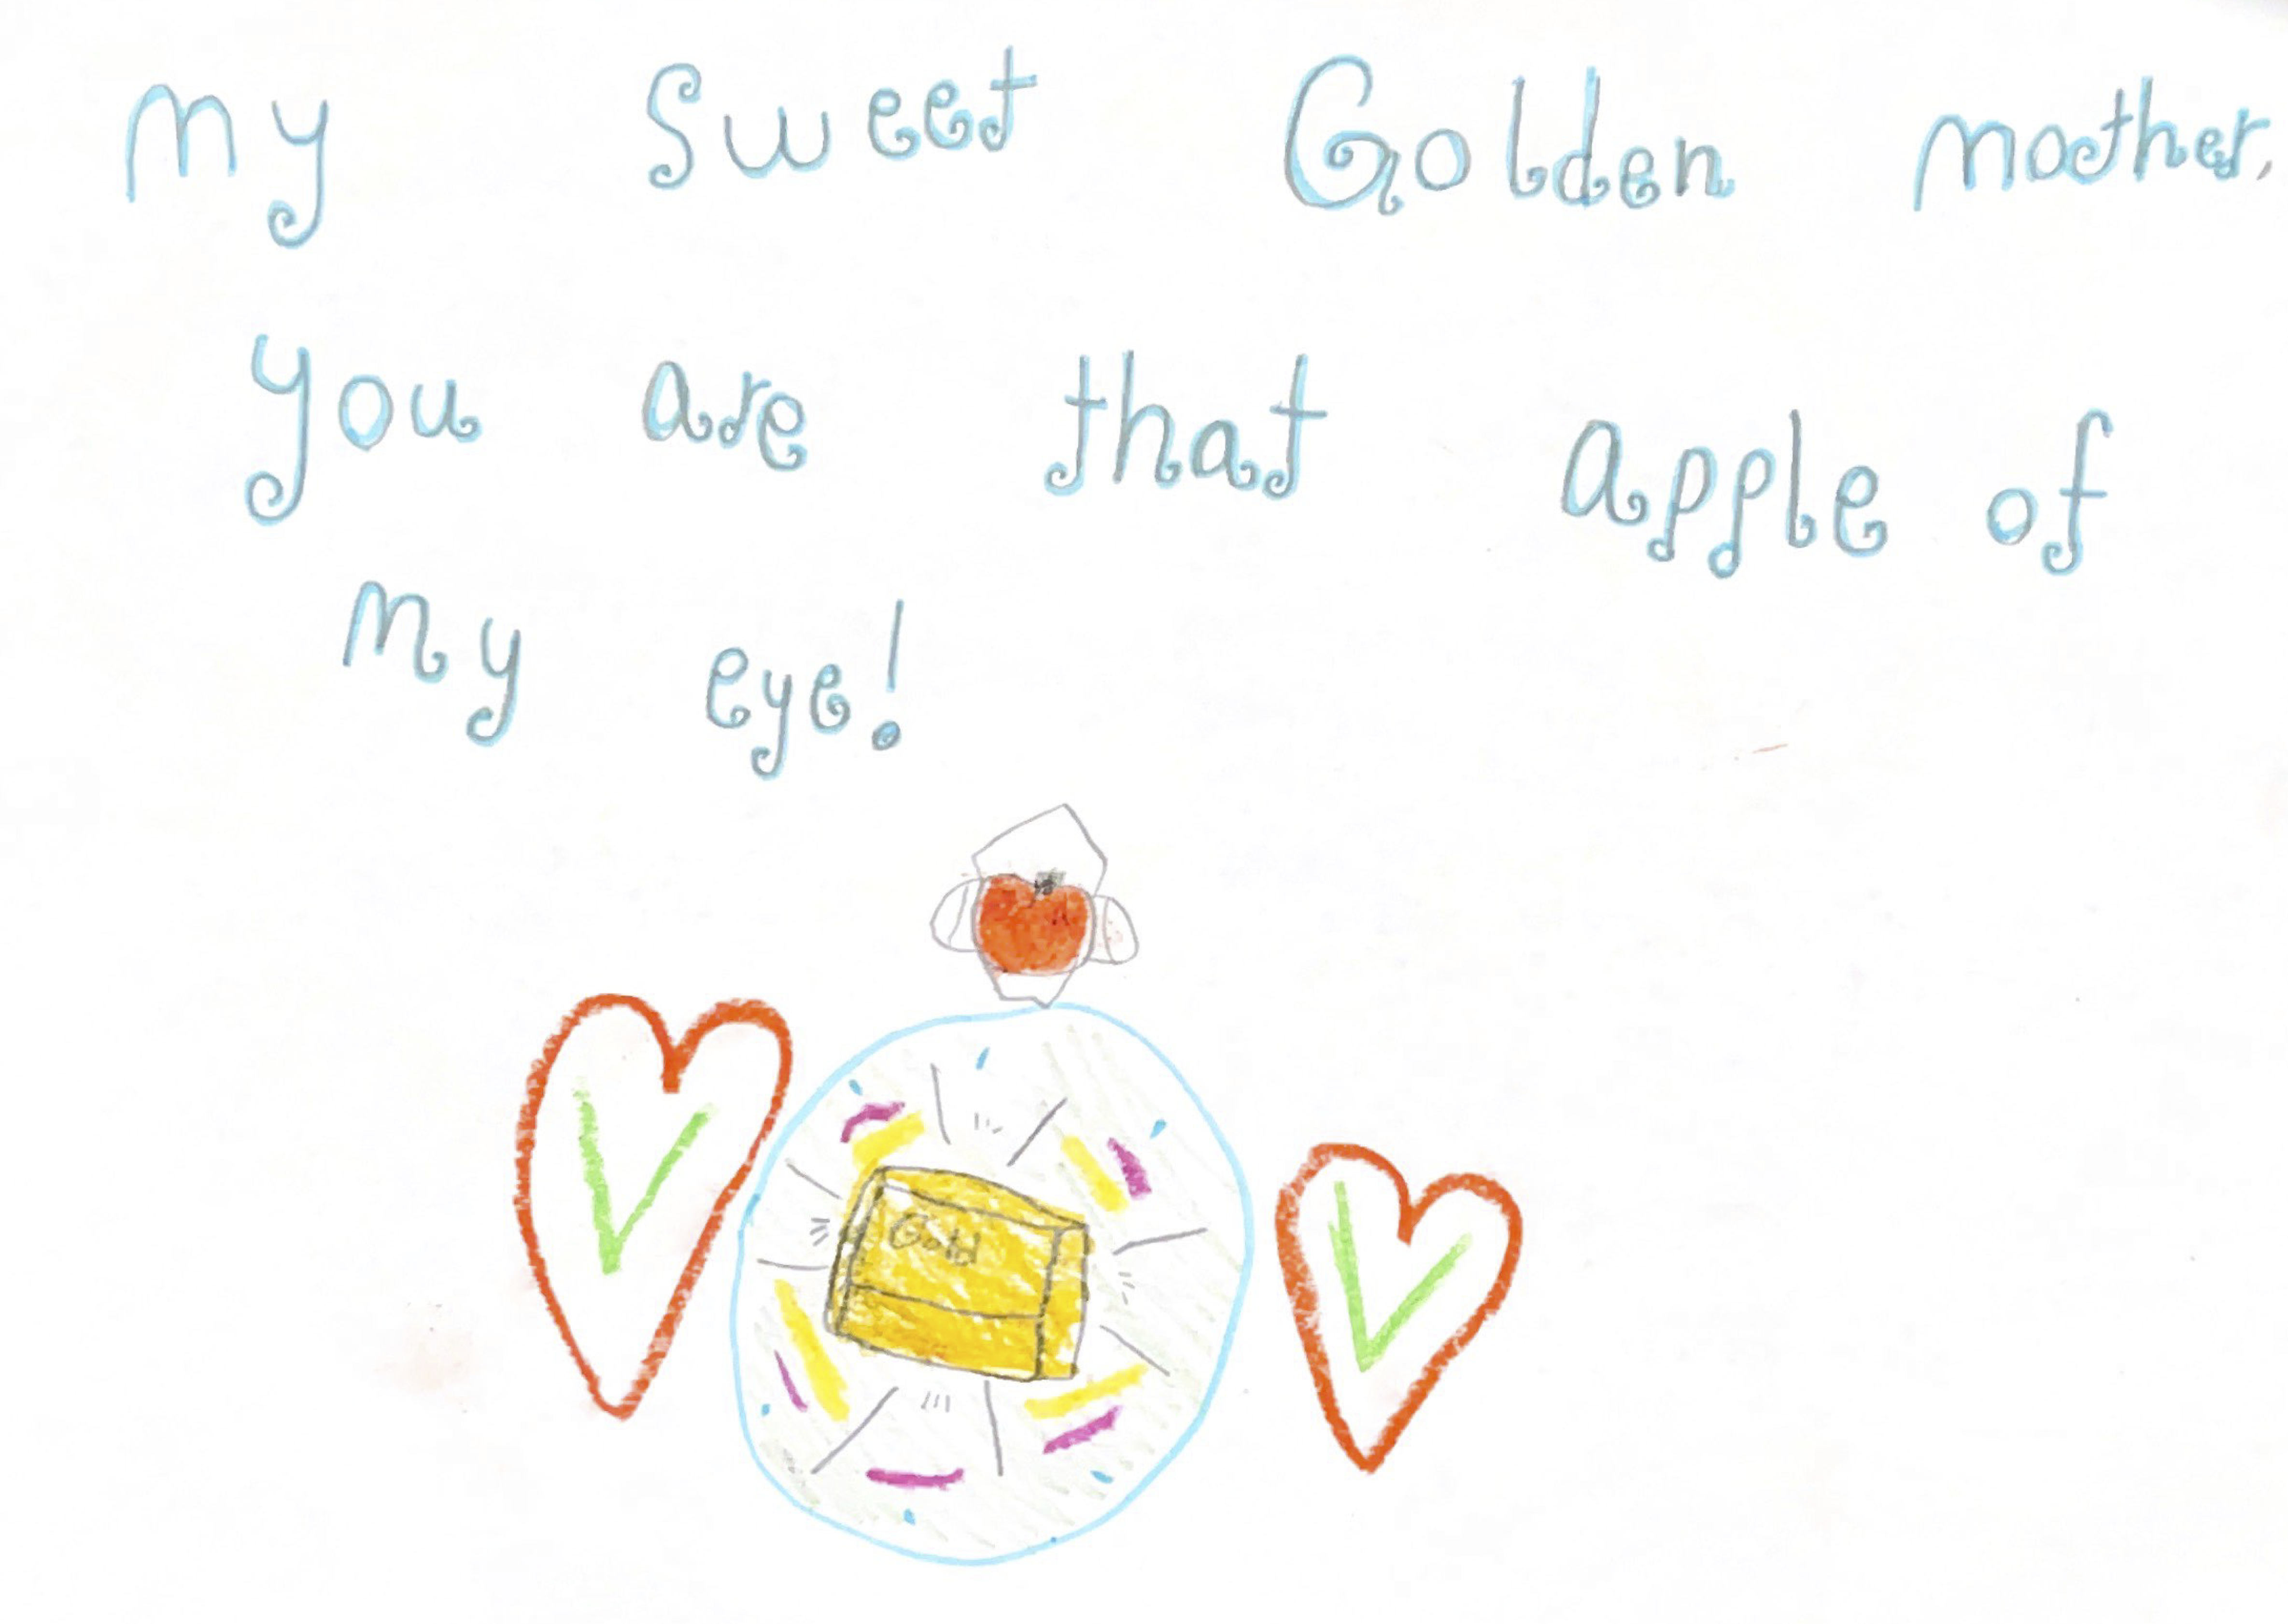 my sweet Golden mother,
you are that apple of
my eye!
Gold